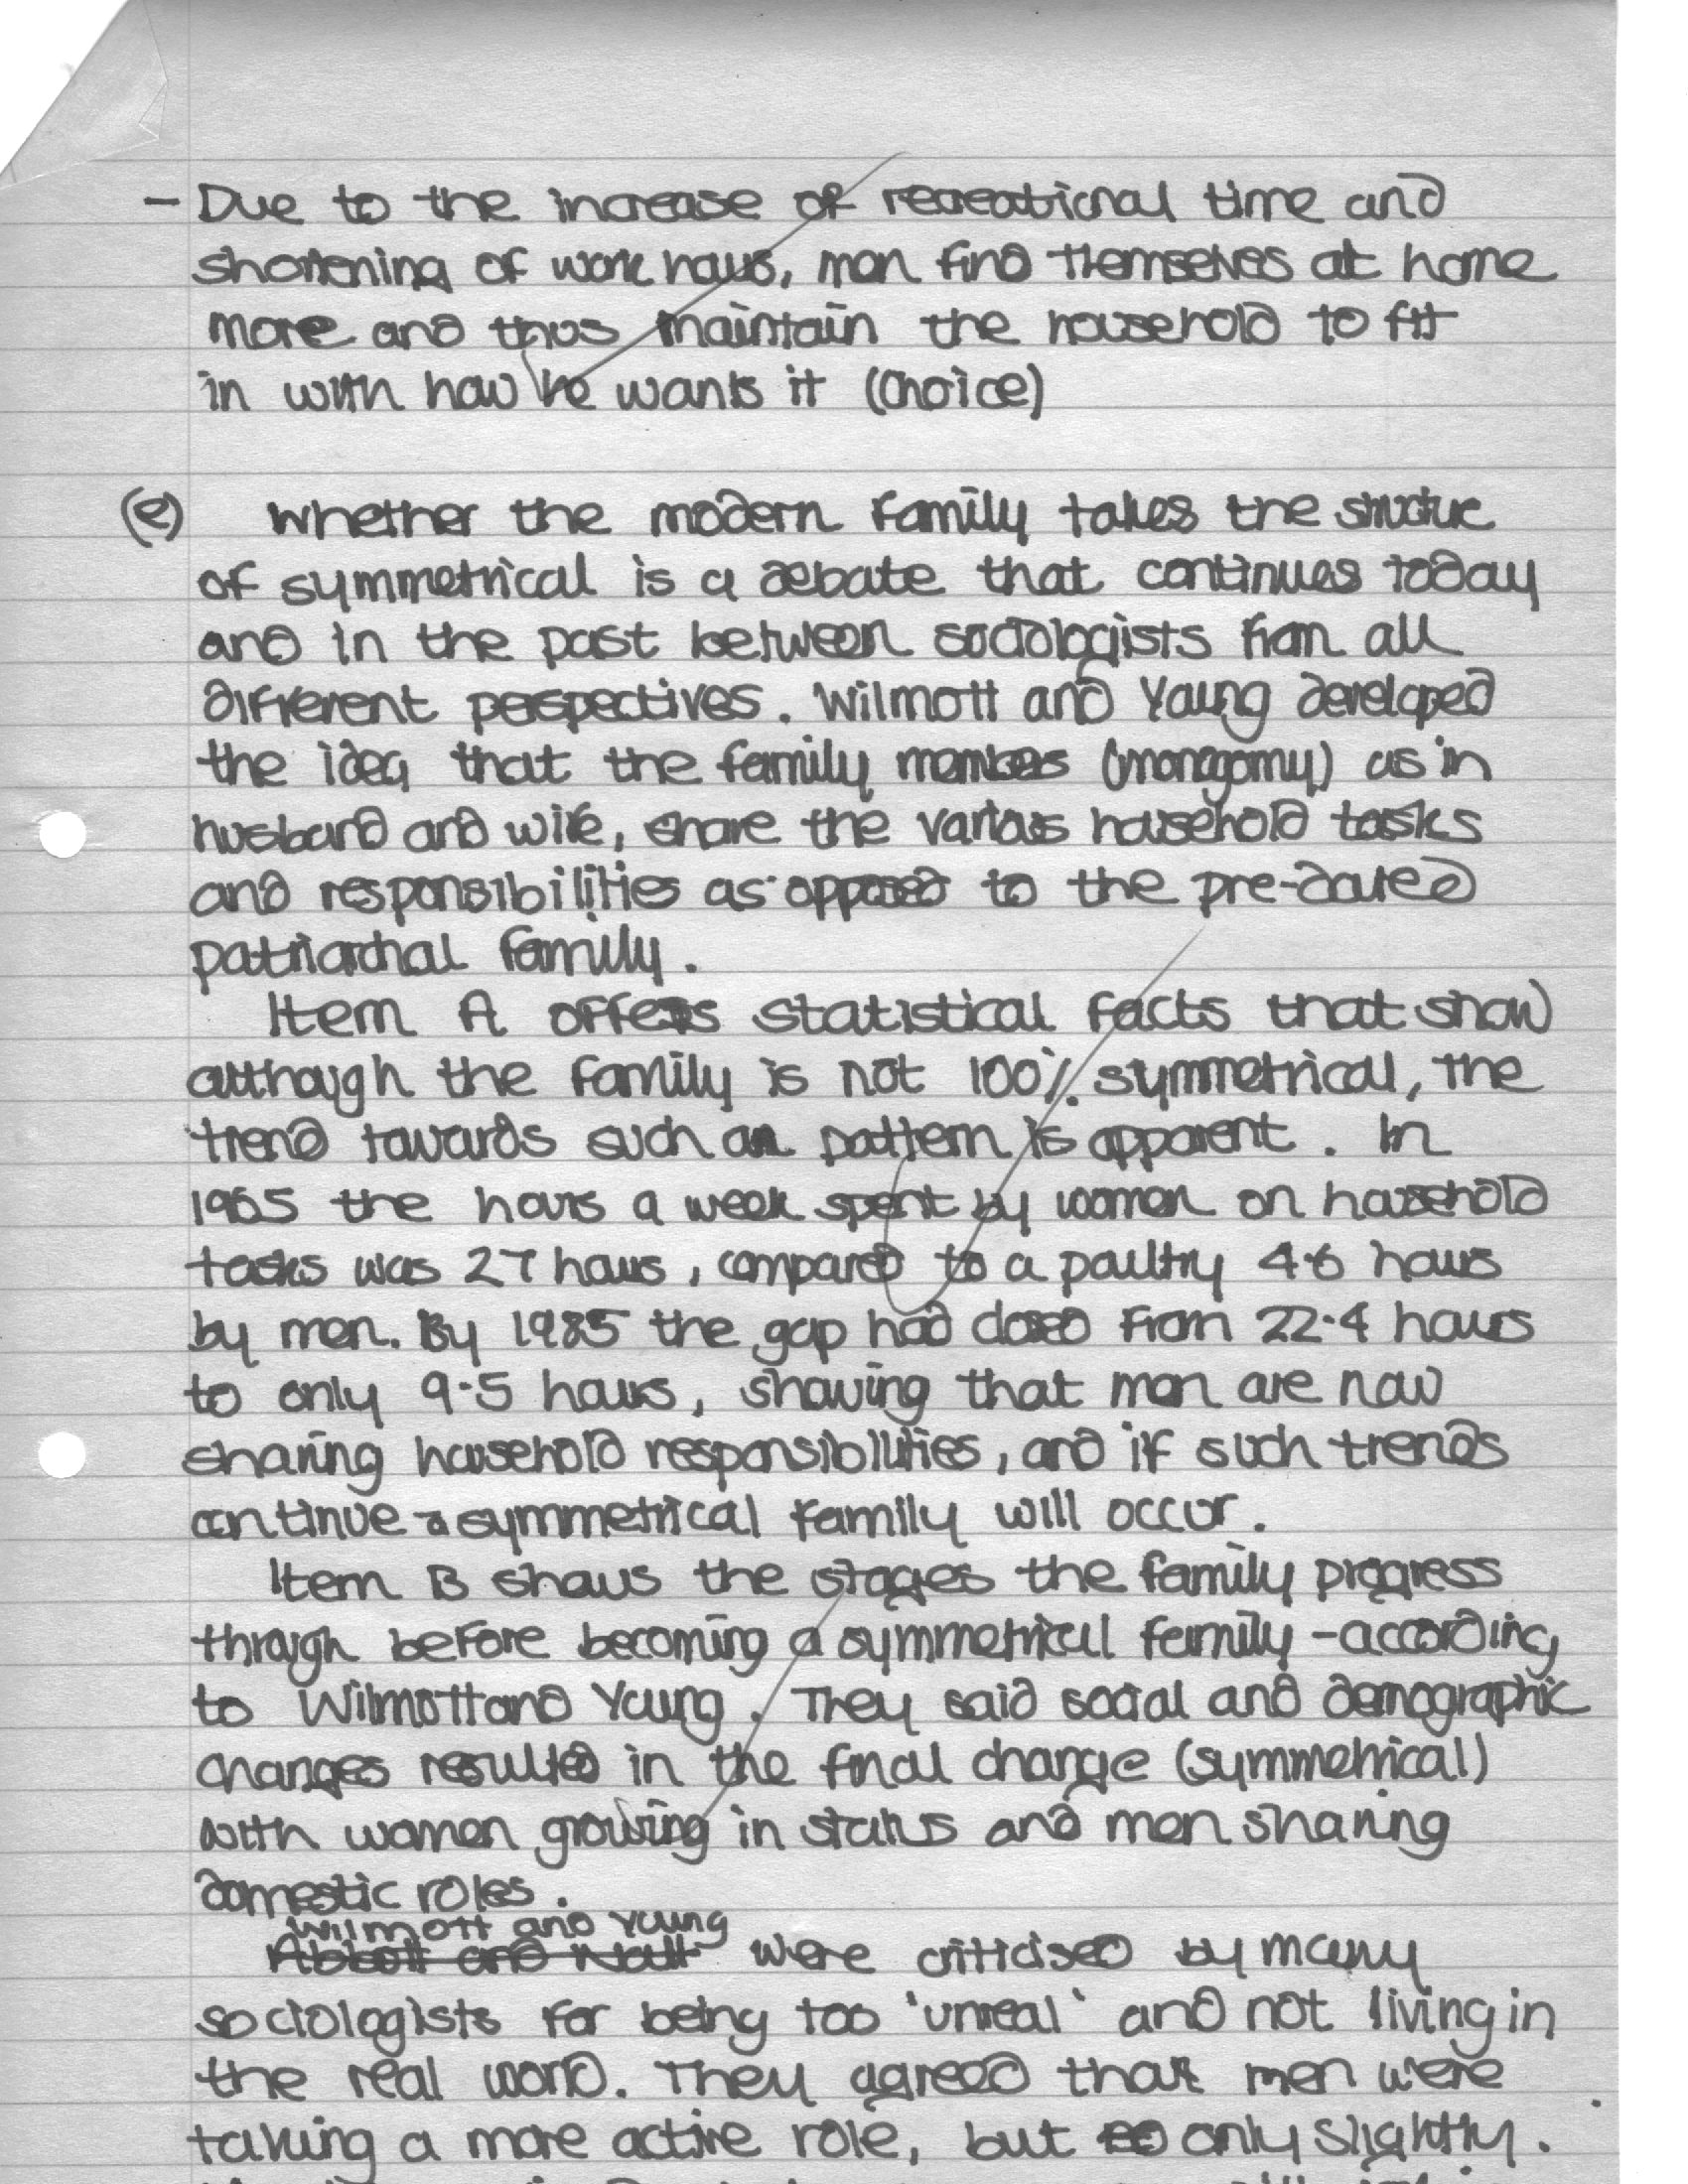 - Due to the increase of recreational time and
shortening of work hours, men find themselves at home
more and thus maintain the household to fit
in with how he wants it (choice)
(e) Whether the modern family takes the structure
of symmetrical is a debate that continues today
and in the past between sociologists from all
different perspectives. Wilmott and Young developed
the idea that the family members (monogomy) as in
husband and wife, share the various household tasks
and responsibilities as opposed to the pre-dated
patriarchal family.
Item A offers statistical facts that show
although the family is not 100% symmetrical, the
trend towards such an pattern is apparent. In
1965 the hours a week spent by women on household
tasks was 27 hours, compared to a paultry 4.6 hours
by men. By 1985 the gap had closed from 22.4 hours
to only 9.5 hours, showing that men are now
sharing household responsibilities, and if such trends
continue a symmetrical family will occur.
Item B shows the stages the family progress
through before becoming a symmetrical family - according
to Wilmott and Young. They said social and demographic
changes resulted in the final change (symmetrical)
with women growing in status and men sharing
domestic roles.
Wilmott and Young
Abbott and Nall were criticised by many
sociologists for being too 'unreal' and not living in
the real world. They agreed that men were
taking a more active role, but so only slightly.